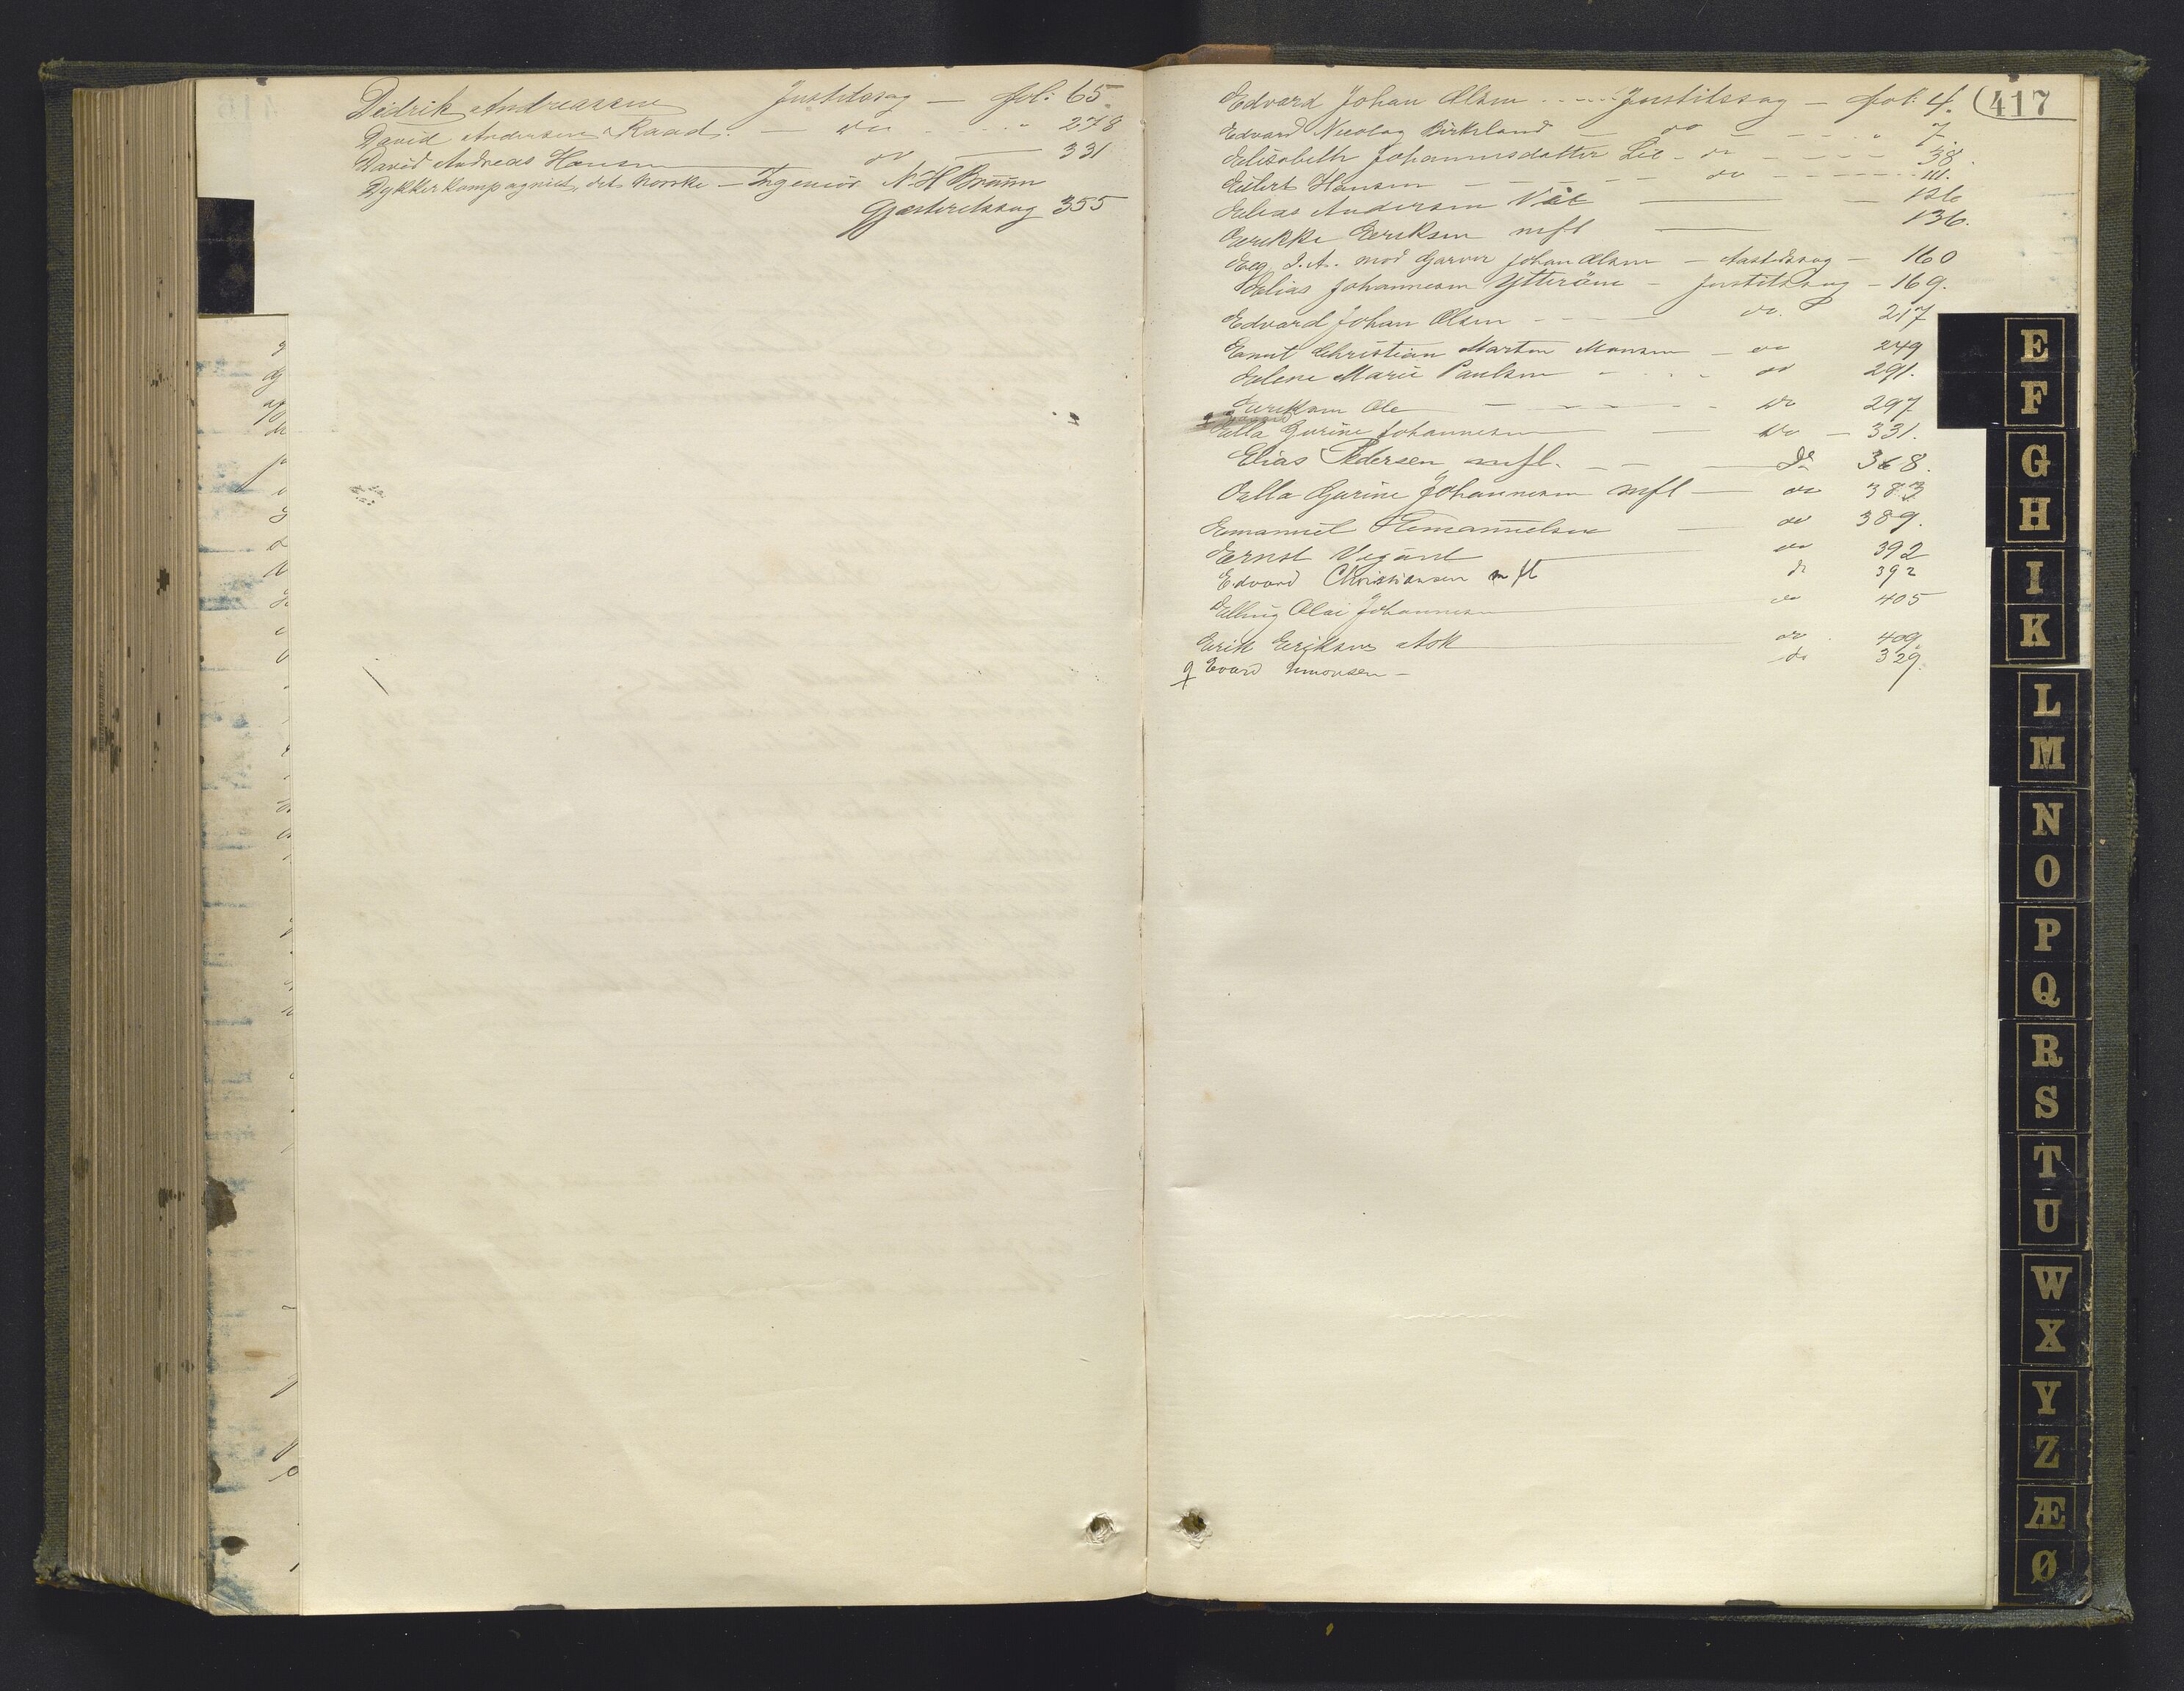 Didrik Andreassen Justitssag — fol: 65.
David Andersen Raad. — do . . . . 278
David Andreas Hansen do — 331
Dykkerkompagniet, det norske — Ingeniør N. H Bruun
Gjesteretssag 355
417
Edvard Johan Olsen . . — . . Justitssag — fol: 4.
Edvard Nicolay Birkeland — do — — — . „ 7.
Elisabeth Johannesdatter Lie - do - — — — 38.
Eilert Hansen — — — — — do — — — — . 111.
Elias Andersen — — 126
Erikke Eriksen mfl — 136.
Eeg J. A. mod Garver Johan Olsen — Aastedssag — 160
Elias Johannesen Ytterøen — Justitssag — 169.
Edvard Johan Olsen — — — — do. 217
Ernst Christian Martin Monsen — do 249
Elene Marie Paulsen - . . - do 291.
Eriksen Ole — — — — — do 297
Ella Gurine Johannesen — do — 331.
Elias Pedersen mfl. — — — do 368.
Ella Gurine Johannesen mfl — do 383
Emanuel Emanuelsen — do 389.
Ernst Vigant do 392
Edvard Christiansen mfl do 392
Elling Olai Johannesen do 405
Erik Eriksen Ask do. 409.
Evard Simonsen — do 329.
E
F
G
H
I
K
L
M
N
O
P
Q
R
S
T
U
W
X
Y
Z
Æ
Ø